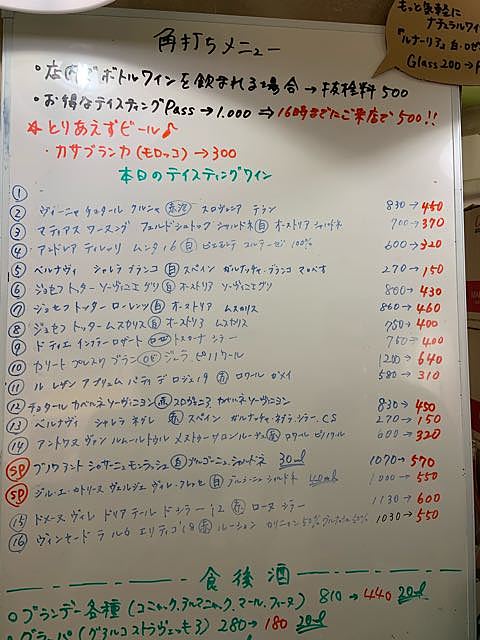 もっと気軽に
ナチュラルワイ
「ルナーリア」白・ロゼ
Glass 200→
角打ちメニュー
・店内でボトルワインを飲まれる場合→抜栓料 500
・お得なテイスティングPass→1.000⇒16時までにご来店で500!!
とりあえずビール♪
・カサブランカ(モロッコ)→300
本日のテイスティングワイン
①
② ヴィーニャ 赤泡 スロヴェニア テラン 830→450
③ マティアス ワーヌング フェルドシュトック シャルドネ 白 オーストリア シャルドネ 700→370
④ アンドレア ティレリ ムンタ 16 白 ピエモンテ コルテーゼ 100% 600→320
⑤ ベルナヴィ シャレラ ブランコ 白 スペイン ガルナッチャ・ブランコ マカベオ 270→150
⑥ ジョセフ トッター ソーヴィニエ グリ 白 オーストリア ソーヴィニエ グリ 800→430
⑦ ジョセフ トッター ローレンツ 白 オーストリア ムスカリス 860→460
⑧ ジョセフ トッター ムスカリス 白 オーストリア ムスカリス 750→400
⑨ ド ティエ インテラーロザート ロゼ トスカーナ シラー 750→400
⑩ カリート プレスク ブラン ロゼ ジュラ ピノノワール 1200→640
⑪ ル レザン アプリュム パティ デ ロジェ 19 赤 ロワール ガメイ 580→310
⑫ チョタール カベルネ ソーヴィニヨン 赤 スロヴェニア カベルネ・ソーヴィニヨン 830→450
⑬ ベルナヴィ シャレラ ネグレ 赤 スペイン ガルナッチャ・ネグラ・シラー・CS 270→150
⑭ アントワヌ ヴァン 赤 ロワール ピノノワール 600→320
SP ブリウアント シャサーニュ モンラッシェ 白 ブルゴーニュ シャルドネ 30ml 1070→570
SP ジル・エ・カトリーヌ ヴェルジェ ヴィレ・クレッセ 白 ブルゴーニュ シャルドネ 40ml 1000→550
⑮ ドメーヌ ヴィレ ドリア テール ド シラー 12 赤 ローヌ シラー 1130→600
⑯ ヴィンセード ラ ルカ エリティゴ 18 赤 ルーション カリニャン 50% グルナッシュ 50% 1030→550
食後酒
・ブランデー各種(コニャック、アルマニャック、マール、フィーヌ) 810→440 20ml
・グラッパ(グアルコ ストラヴェッキオ3) 280→180 20ml